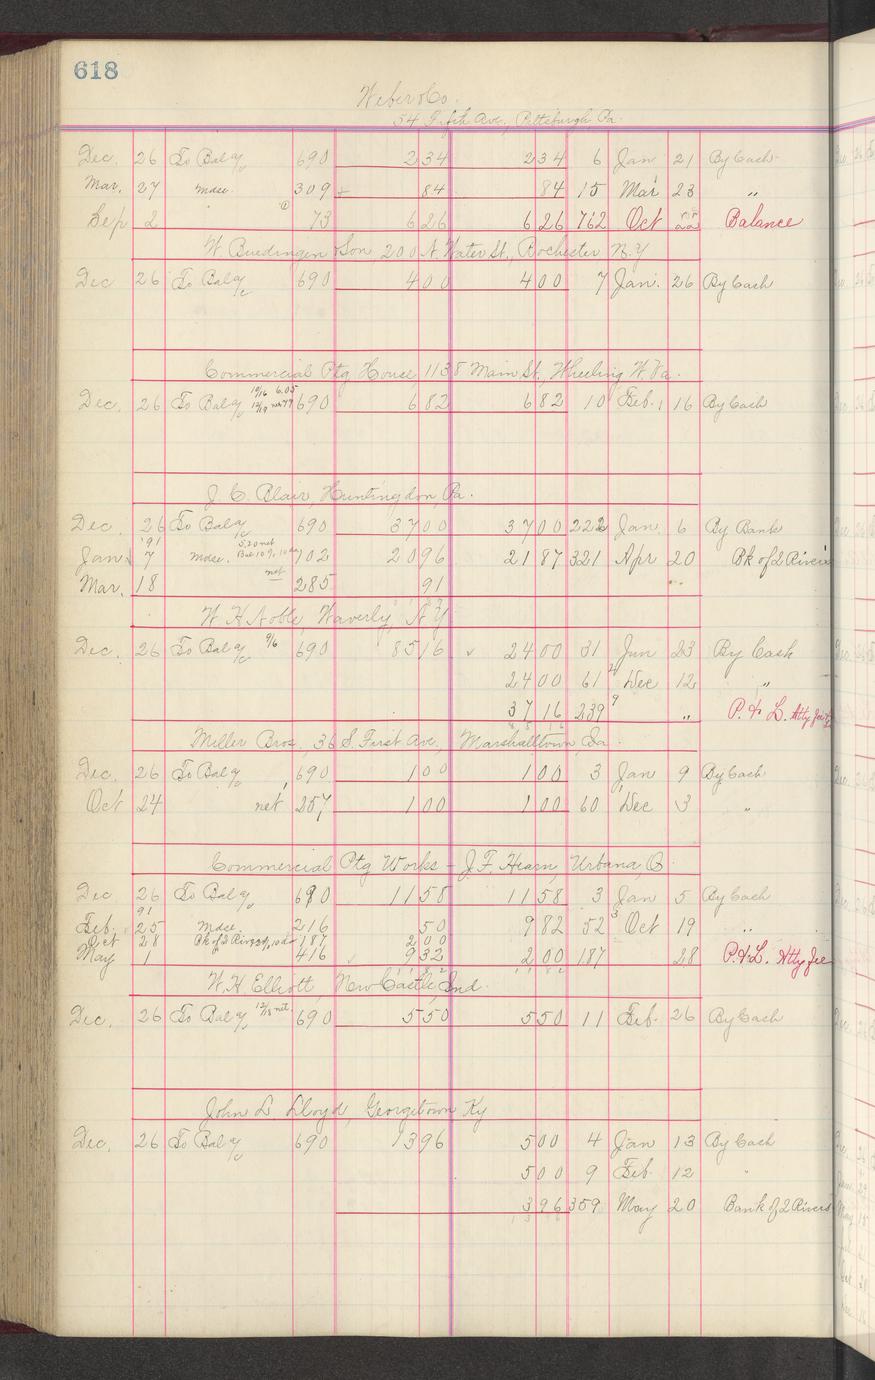 618
Weber & Co.
54 Fifth Ave., Pittsburgh Pa.
Dec. 26 To Bal a/c 690 234 234 6 Jan 21 By Cash
Mar. 27 mdse. 309 84 84 15 Mar 23 "
Sep 2 " 73 626 626 762 Oct 22 Balance
W Buedingen & Son 200 N. Water St., Rochester N.Y
Dec 26 To Bal a/c 690 400 400 7 Jan. 26 By Cash
Commercial Ptg House, 1138 Main St., Wheeling W Va.
Dec. 26 To Bal a/c 690 682 682 10 Feb. 16 By Cash
J. C. Blair, Huntingdon, Pa.
Dec 26 To Bal a/c 690 3700 3700 222 Jan. 6 By Bank
'91
Jan. 7 mdse. 5.20 net 702 2096 2187 321 Apr 20 Bk of 2 Rivers
Mar. 18 net 285 91
W. H. Noble, Waverly, N.Y
Dec. 26 To Bal a/c 9/6 690 8516 2400 31 Jun 23 By Cash
2400 61 Dec 12 "
3716 239 " P. & L. Atty fee
Miller Bros, 36 S. First Ave., Marshalltown, Ia.
Dec. 26 To Bal a/c 690 100 100 3 Jan 9 By Cash
Oct 24 net 257 100 100 60 Dec 3 "
Commercial Ptg Works - J. F. Hearn, Urbana, O.
Dec 26 To Bal a/c 690 1158 1158 3 Jan 5 By Cash
91
Feb. 25 Mdse. 216 50 982 52 Oct 19 "
Oct 28 Bk of 2 Rivers 187 200
May 1 416 932 200 187 28 P. & L. Atty fee
W. H. Elliott, New Castle, Ind.
Dec. 26 To Bal a/c 12/18 net. 690 550 550 11 Feb. 26 By Cash
John L Lloyd, Georgetown Ky
Dec. 26 To Bal a/c 690 1396 500 4 Jan 13 By Cash
500 9 Feb. 12 "
396 359 May 20 Bank of 2 Rivers